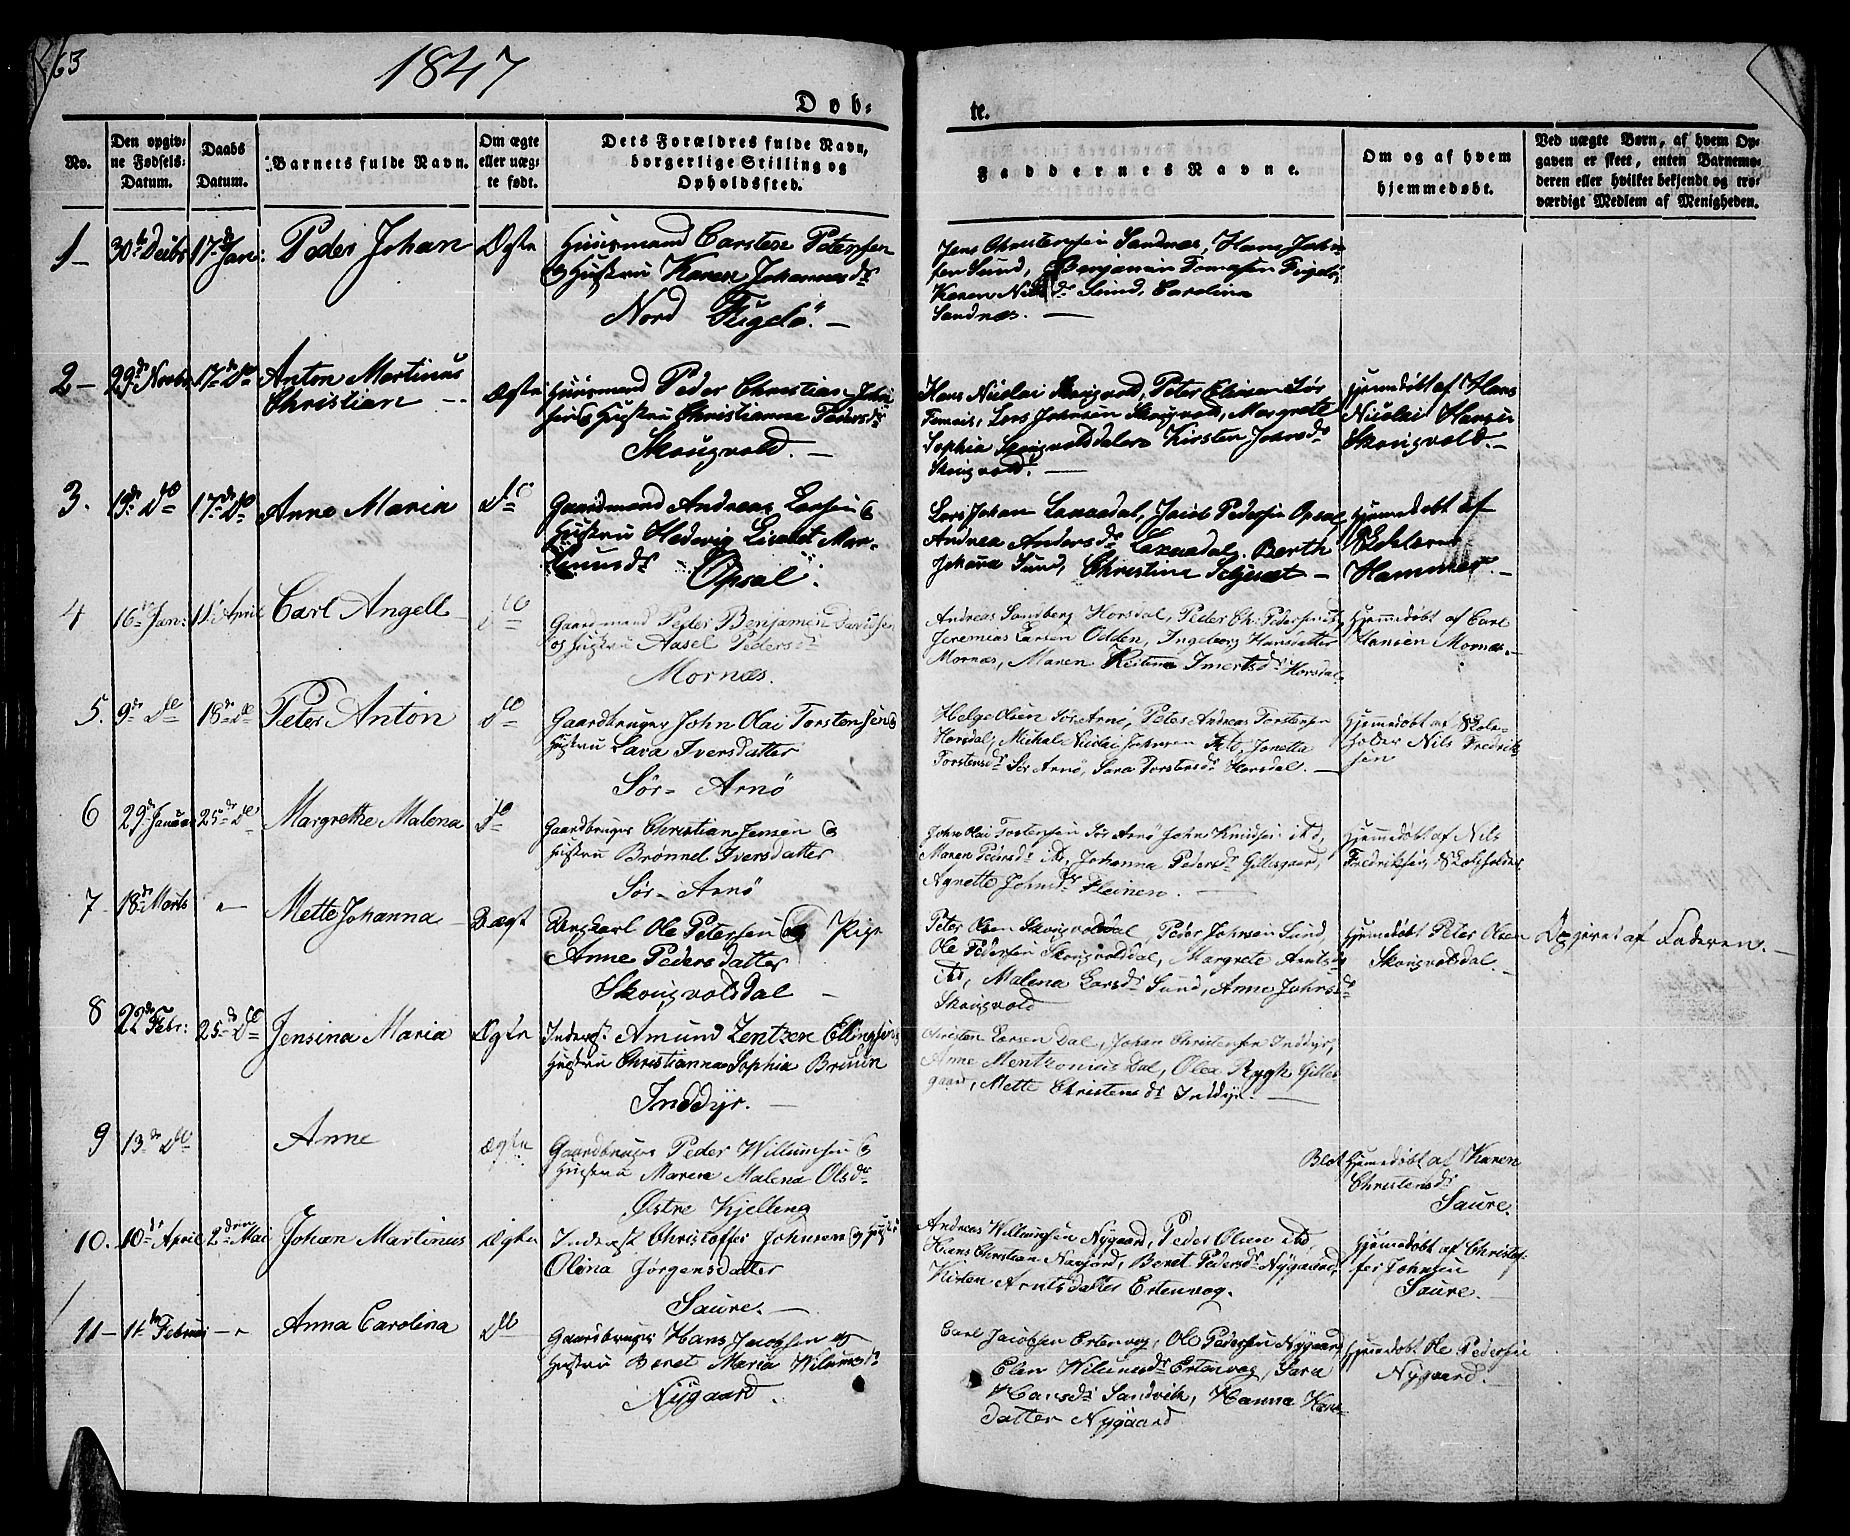 63
1847
Døb-
te.
No.
Den opgiv-
ne Fødsels-
Datum.
Daabs
Datum.
Barnets fulde Navn.
Om ægte
eller uæg-
te født.
Dets Forældres fulde Navn,
borgerlige Stilling og
Opholdssted.
Faddernes Navne.
Om og af hvem
hjemmedøbt.
Ved uægte Børn, af hvem Op-
gaven er skeet, enten Barnemo-
deren eller hvilket bekjendt og tro-
værdigt Medlem af Menigheden.
1 - 30te Decbr 17de Jan: Peder Johan Ægte
Huusmand Carstese Petersen
og Hustru Karen Johannesdr
Nord Fugelø. -
Jens Christensen Sandnæs, Hans John-
sen Sund, Benjamin Tomasen Fugelø,
Karen Nilsdr Sund, Carolina
Sandnæs. -
2 - 29de Novbr 17de Do Anton Martinus
Christian -
Ægte
Huusmand Peder Christian John
sen og Hustru Christianna Pedersdr
Skougvold. -
Hans Nicolai Skougvold, Peter Elingsen Sør
Lars Johnsen Skougvold, Margrete
Sophia Kirsten Johnsdr
Skougvold. -
Hjemedøbt af Hans
Nicolai Hansen
Skougvold. -
3. 19de Do 17de Do Anne Maria Do
Gaardmand Andreas Larsen og
Hustru Hedevig Lisabet Mar-
Opsal.
Lars Johan Laxaadal, Jacob Pedersen Opsal
Andrea Andersdr Laxaadal, Berth
Johana Sund, Christine Seljesæt -
Hjemedøbt af
Hammer. -
4 16de Jan: 11te April Carl Angell - Do
Gaardmand Peder Benjamin Davidsen
og Hustru Aasel Pedersdr
Mornæs.
Andreas Sandberg Horsdal, Peder Ch. Pedersen
Jeremias Larsen Odden, Ingeborg Hansdatter
Mornæs, Maren Kristina Horsdal
Hjemmedøbt af Carl
Hansen Mornæs. -
5. 9de Do 18de Do Peter Anton Do
Gaardbruger John Olai Torstensen og
Hustru Lava Iversdatter
Sør- Arnø
Helge Olsen Sør Arnø, Peter Andreas Torstensen
Horsdal, Michale Nicolai Johnsen ibd, Jonetta
Torstensdr Sør Arnø, Sara Torstensdr Horsdal. -
Hjemmedøbt af Skole-
holder Nils Fredrik-
sen
6 29de Januar 25de Do Margrethe Malena Do
Gaardbruger Christian Jensen og
Hustru Brønnel Iversdatter
Sør- Arnø
John Olai Torstensen Sør Arnø John Knudsen ibd,
Maren Pedersdr ibd, Johanna Pedersdr Gillesgaard,
Agnette Johnsdr Fleinen. -
Hjemmedøbt af Nils
Fredriksen, Skoleholder
7 18de Marts " Mette Johanna - Uægt
Ungkarl Ole Petersen og Pige
Anne Pedersdatter
Skougvolsdal -
Peter Olsen Skougvolsdal, Peder Johnsen Sund,
Ole Pedersen Skougvolsdal, Margrete
ibd, Malena Larsdr Sund, Anne Johnsdr
Skougvold
Hjemmedøbt Peter Olsen
Skougvolsdal. -
Opgivet af Faderen. -
8 22de Febr: 25de Do Jensina Maria Ægte
Inderst Amund Zentzen Ellingsen og
Hustru Christianna Sophia Bruun
Inddyr. -
Christen Larsen Dal, Johan Christensen Inddyr,
Anne Mentzonius Dal, Olea Rygh Gilles
gaard, Mette Christensdr Inddyr. -
9 13de Do Anne Ægte
Gaardbruger Peder Willumsen og
Hustru Maren Malena Olsdr
Østre Kjelleng
Blot Hjemedøbt af Karen
Christensdr
Saure.
10. 10de April 2den Mai Johan Martinus Ægte
Inderst Christoffer Johnsen og Hustru
Olena Jørgensdatter
Saure. -
Andreas Willumsen Nygaard, Peder Olsen ibd,
Hans Christian Navjord, Beret Pedersdr Nygaard,
Kirsten Arntsdatter Ertenvog.
Hjemmedøbt af Christof-
fer Johnsen
Saure. -
11 - 11te Februar - " Anna Carolina Do
Gaardbruger Hans Jacobsen og
Hustru Beret Maria Wilumsdr
Nygaard.
Carl Jacobsen Ertenvog, Ole Pedersen Nygaard
Elen Wilumsdr Ertenvog, Sara
Hansdr Sandvik, Hanna Hans-
datter Nygaard
Hjemedøbt Ole Pedersen
Nygaard. -